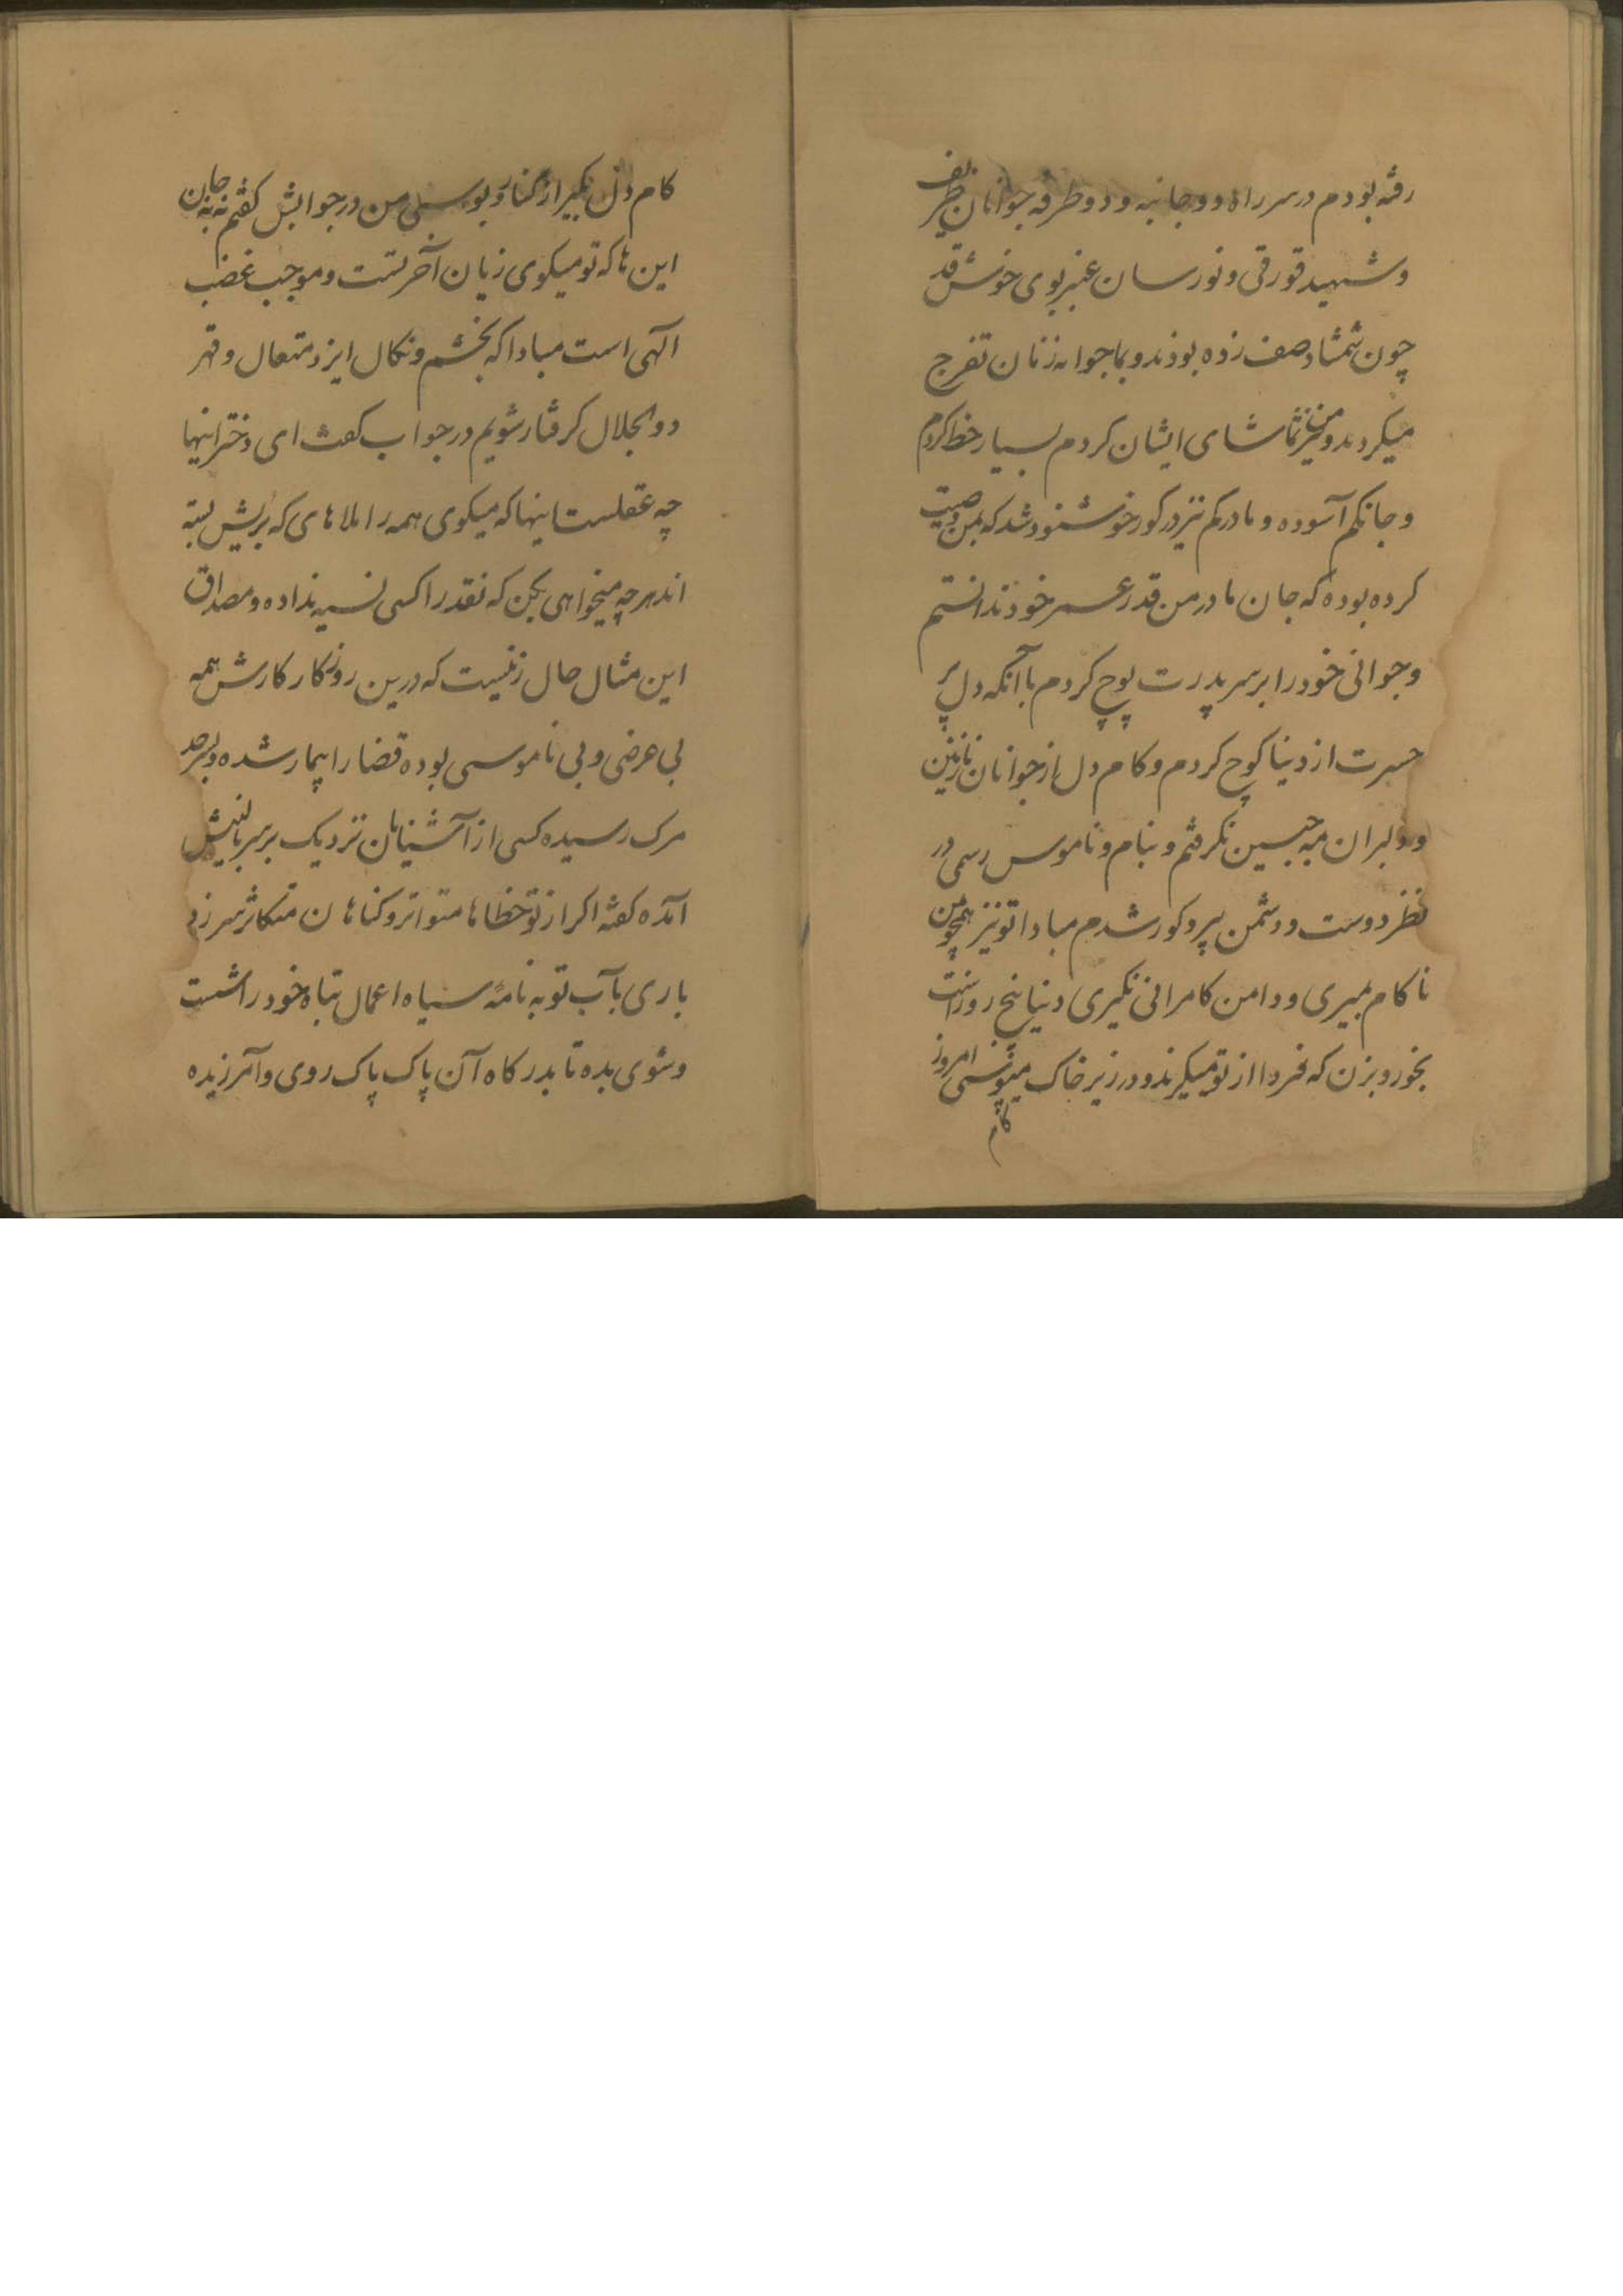 رفته بودم در سر راه دو جانبه و دو طرفه جوانان ظریف
و شهید قورقی و نورسان عنبر بوی خوش قد
چون شمشاد صف زده بودند و بما جوانه زنان تفرج
میکردند و من نیز تماشای ایشان کردم بسیار حظ کردم
و جانکم آسوده و مادرکم نیز در کور خوشنود شد که بمن وصیت
کرده بوده که جان مادر من قدر عمر خود ندانستم
و جوانی خود را بر سر پدرت پوچ کردم با آنکه دل پر
حسرت از دنیا کوچ کردم و کام دل از جوانان نازنین
و دلبران مه جبین نکرفتم و بنام و ناموس رسمی در
نظر دوست و دشمن پیر و کور شدم مبادا تو نیز همچو من
ناکام بمیری و دامن کامرانی نکیری دنیا پنج روز است
بخور و بزن که فردا از تو میکیرند و در زیر خاک میپوسی امروز
کام
کام دل بکیر از کنار و بوسی من در جوابش کفتم نه نه جان
این ها که تو میکوی زیان آخرتست و موجب غضب
الهی است مبادا که بخشم و نکال ایزد متعال و قهر
ذوالجلال کرفتار شویم در جواب کفت ای دختر اینها
چه عقلست اینها که میکوی همه را ملاهای که بریش بسته
اند هر چه میخواهی بکن که نقد را کسی نسیه نداده و مصداق
این مثال حال زنیست که درین روزکار کارش همه
بی عرضی و بی ناموسی بوده قضا را بیمار شده و بسرحد
مرک رسیده کسی از آشنایان نزدیک بر سر بالینش
آمده کفته اکر از تو خطاها متواتر و کناهان متکاثر سر زد
باری بآب توبه نامهٔ سیاه اعمال تباه خود را شست
و شوی بده تا بدرکاه آن پاک پاک روی و آمرزیده